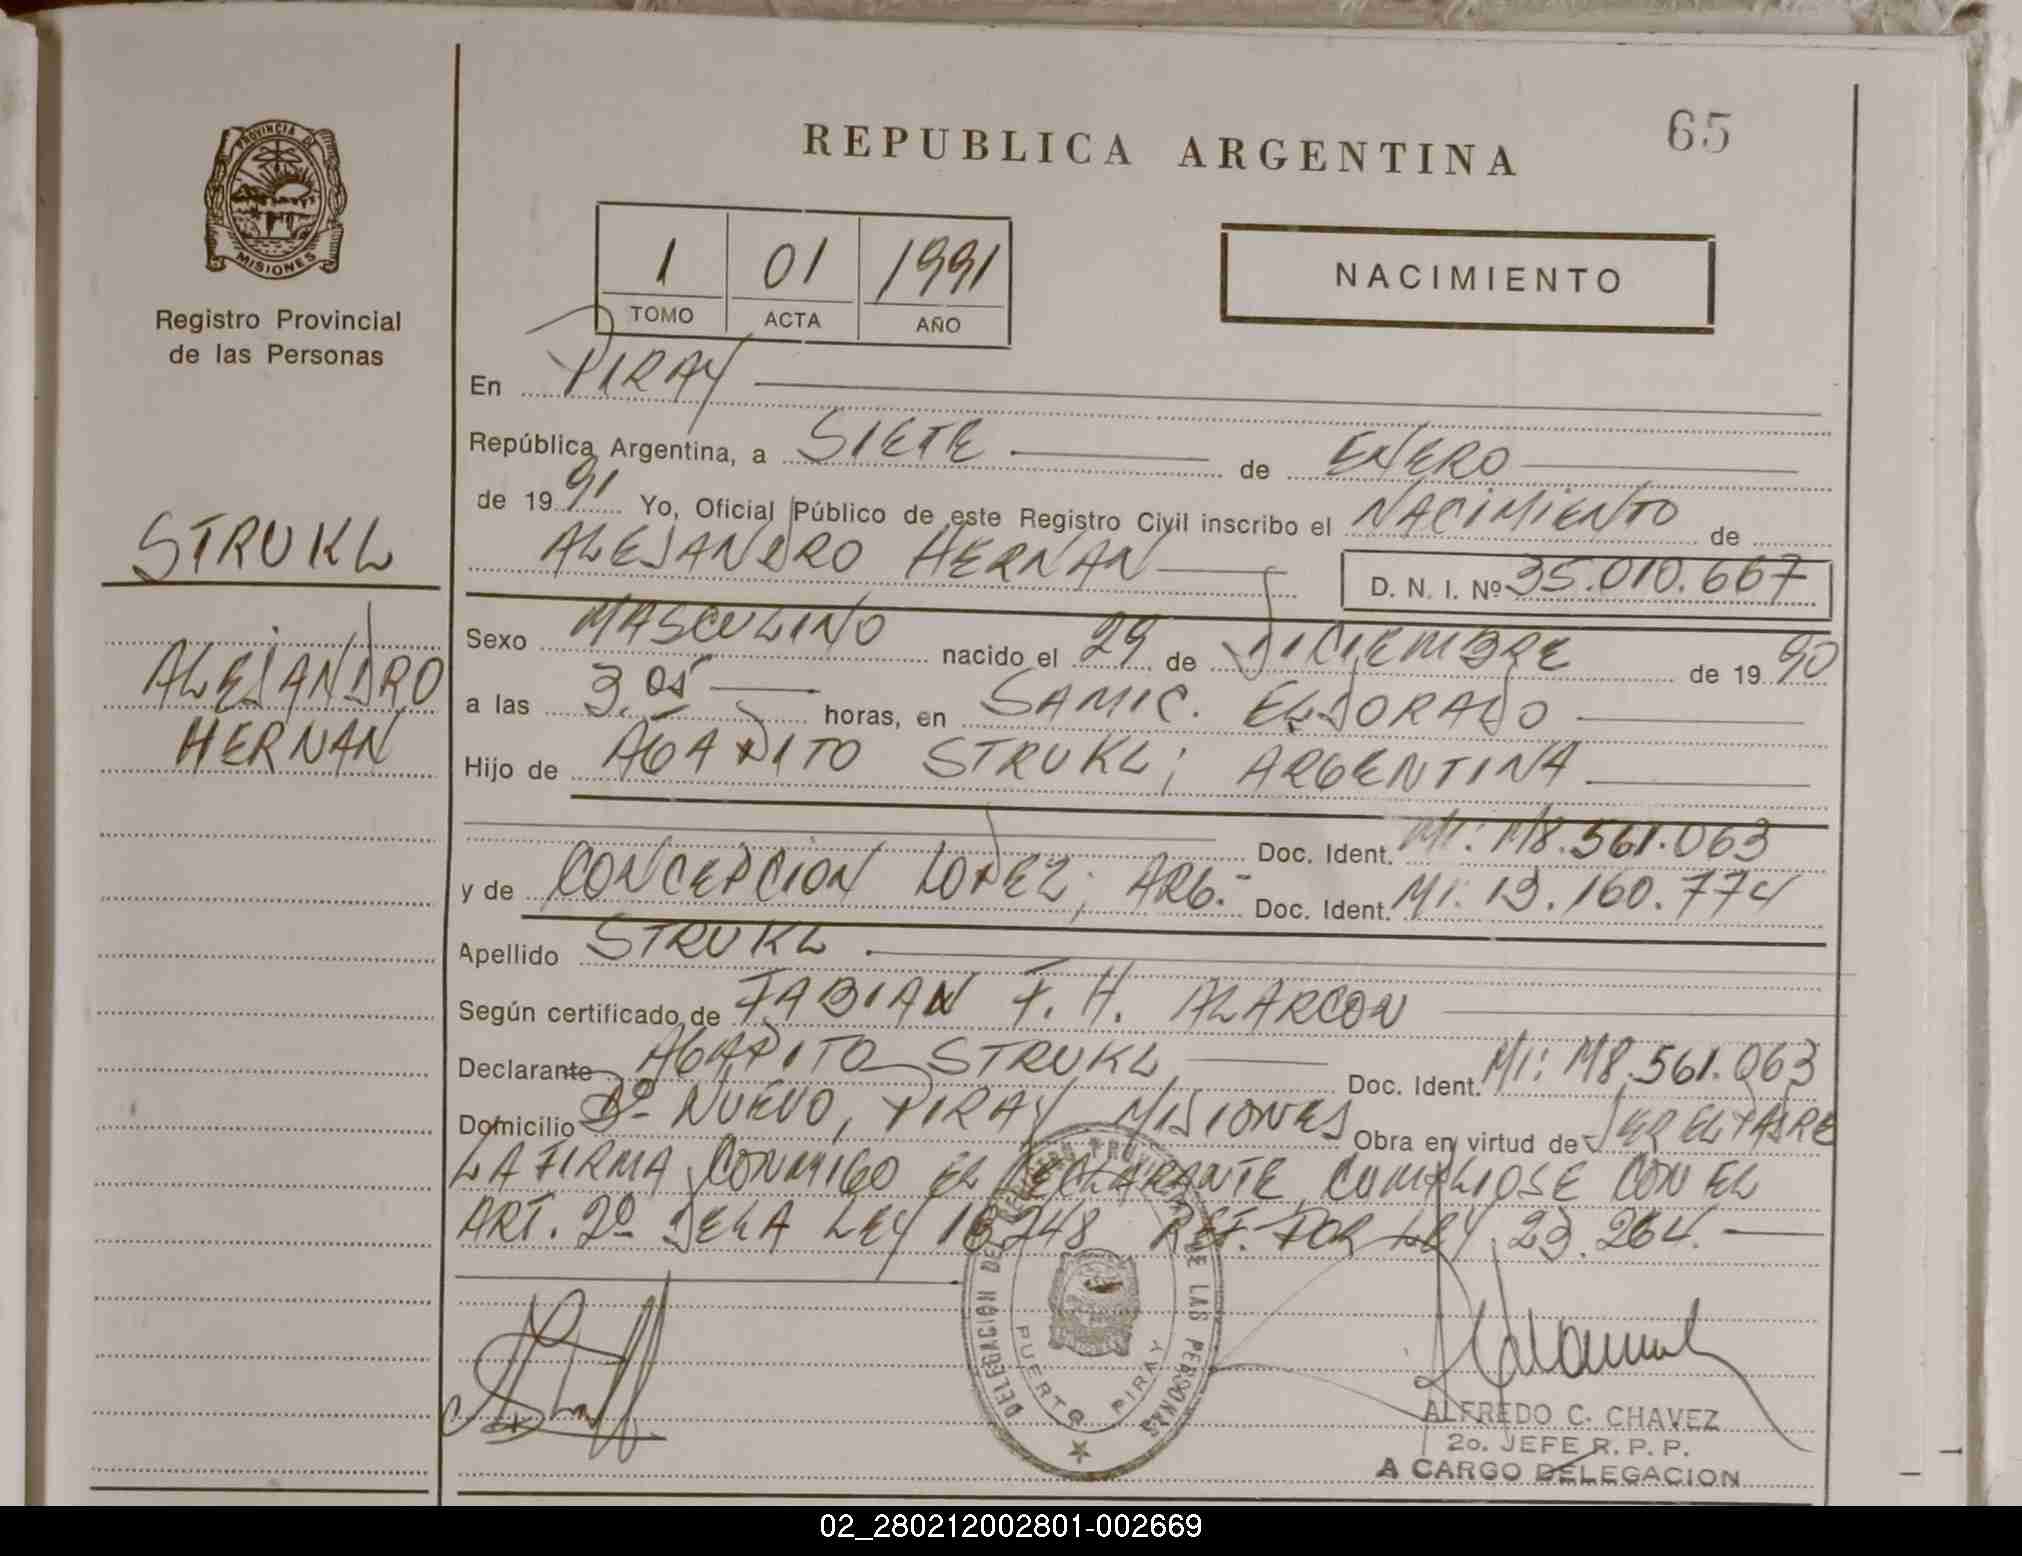 65
REPUBLICA ARGENTINA
PROVINCIA DE
MISIONES
Registro Provincial
de las Personas
1 01 1991
TOMO ACTA AÑO
NACIMIENTO
En PIRAY
República Argentina, a SIETE de ENERO
de 1991 Yo, Oficial Público de este Registro Civil inscribo el NACIMIENTO de
ALEJANDRO HERNAN D. N. I. Nº 35.010.667
STRUKL
ALEJANDRO
HERNAN
Sexo MASCULINO nacido el 29 de DICIEMBRE de 1990
a las 3.05 horas, en SAMIC. ELDORADO
Hijo de AGAPITO STRUKL; ARGENTINA
Doc. Ident. MI: M8.561.063
y de CONCEPCION LOPEZ; ARG.- Doc. Ident. MI: 13.160.774
Apellido STRUKL
Según certificado de FABIAN F. H. ALARCON
Declarante AGAPITO STRUKL Doc. Ident. MI: M8.561.063
Domicilio Bº NUEVO, PIRAY MISIONES Obra en virtud de SER EL PADRE
LA FIRMA CONMIGO EL DECLARANTE, CUMPLIOSE CON EL
ART. 2º DE LA LEY 18.248 REF. POR LEY 23.264.
DELEGACION DEL REGISTRO PROVINCIAL DE LAS PERSONAS
PUERTO PIRAY
ALFREDO C. CHAVEZ
2o. JEFE R. P. P.
A CARGO DELEGACION
02_280212002801-002669